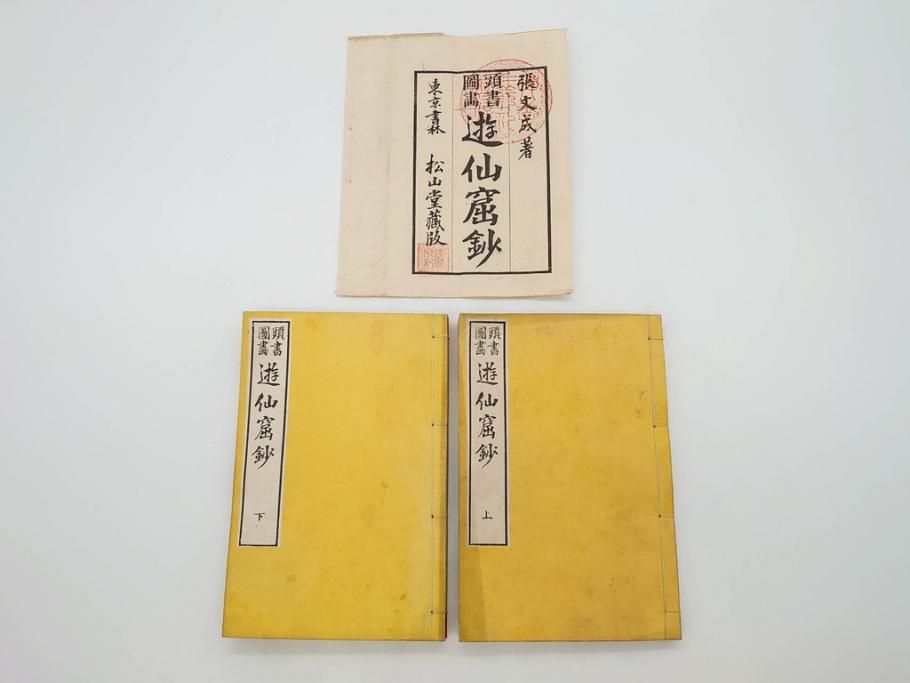 張文成著
頭書
圖畵
遊仙窟鈔
東京書林
松山堂藏版
頭書
圖畵
遊仙窟鈔
上
頭書
圖畵
遊仙窟鈔
下